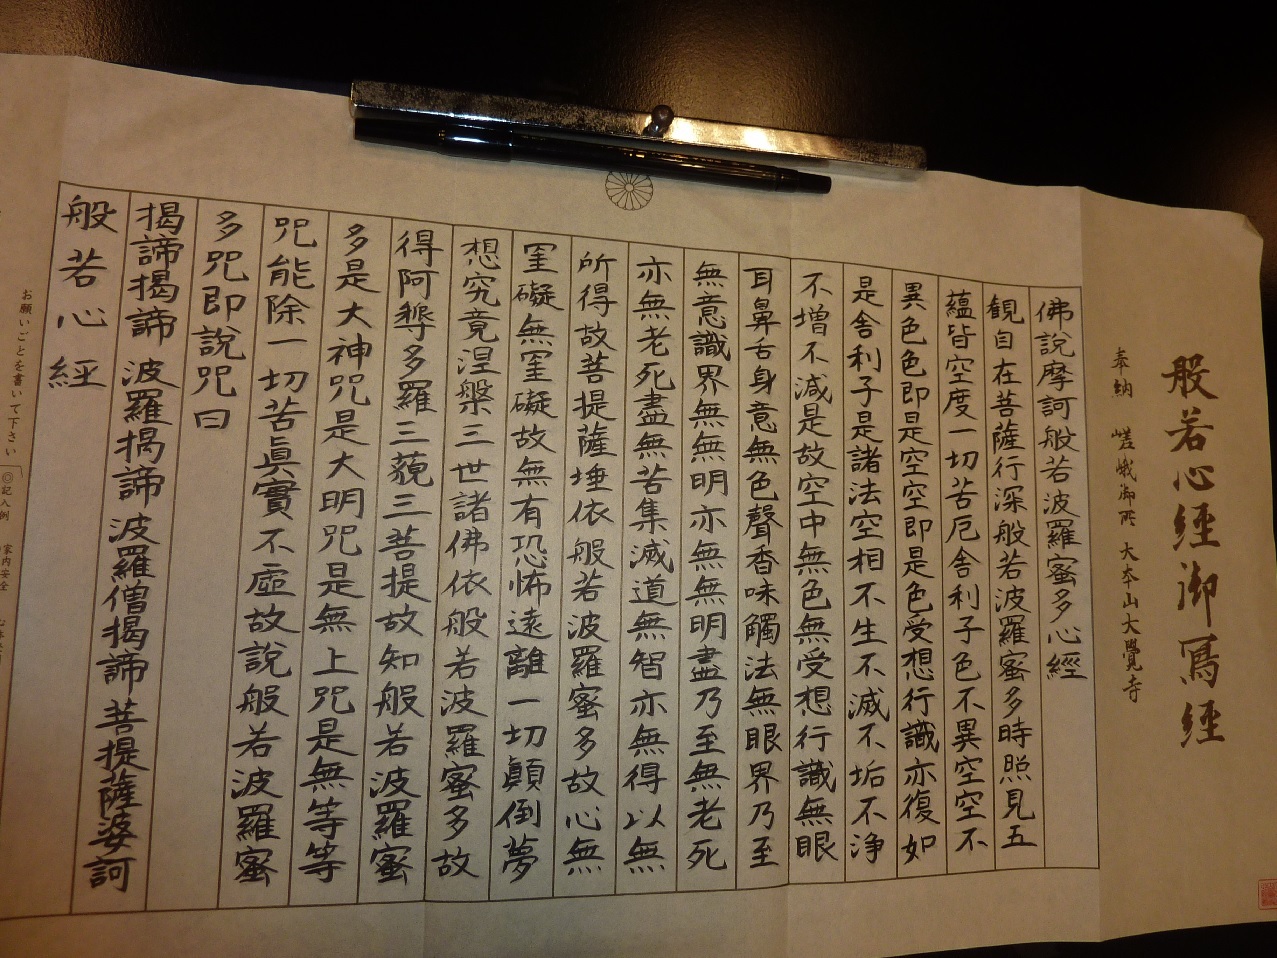 般若心経御寫経
奉納 嵯峨御所 大本山大覺寺
佛說摩訶般若波羅蜜多心經
観自在菩薩行深般若波羅蜜多時照見五
蘊皆空度一切苦厄舎利子色不異空空不
異色色即是空空即是色受想行識亦復如
是舎利子是諸法空相不生不滅不垢不浄
不増不減是故空中無色無受想行識無眼
耳鼻舌身意無色聲香味觸法無眼界乃至
無意識界無無明亦無無明盡乃至無老死
亦無老死盡無苦集滅道無智亦無得以無
所得故菩提薩埵依般若波羅蜜多故心無
罣礙無罣礙故無有恐怖遠離一切顛倒夢
想究竟涅槃三世諸佛依般若波羅蜜多故
得阿耨多羅三藐三菩提故知般若波羅蜜
多是大神咒是大明咒是無上咒是無等等
咒能除一切苦眞實不虛故說般若波羅蜜
多咒即說咒曰
揭諦揭諦 波羅揭諦 波羅僧揭諦 菩提薩婆訶
般若心経
お願いごとを書いて下さい
◎記入例 家内安全